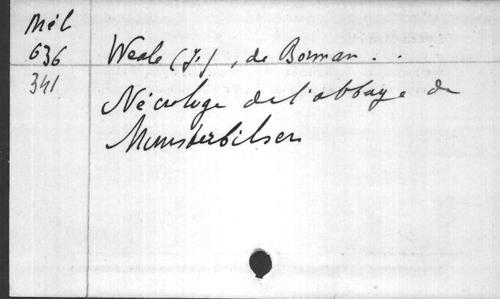 Mél
636
341
Weale (J.), de Borman . .
Nécrologe de l'abbaye de
Munsterbilsen